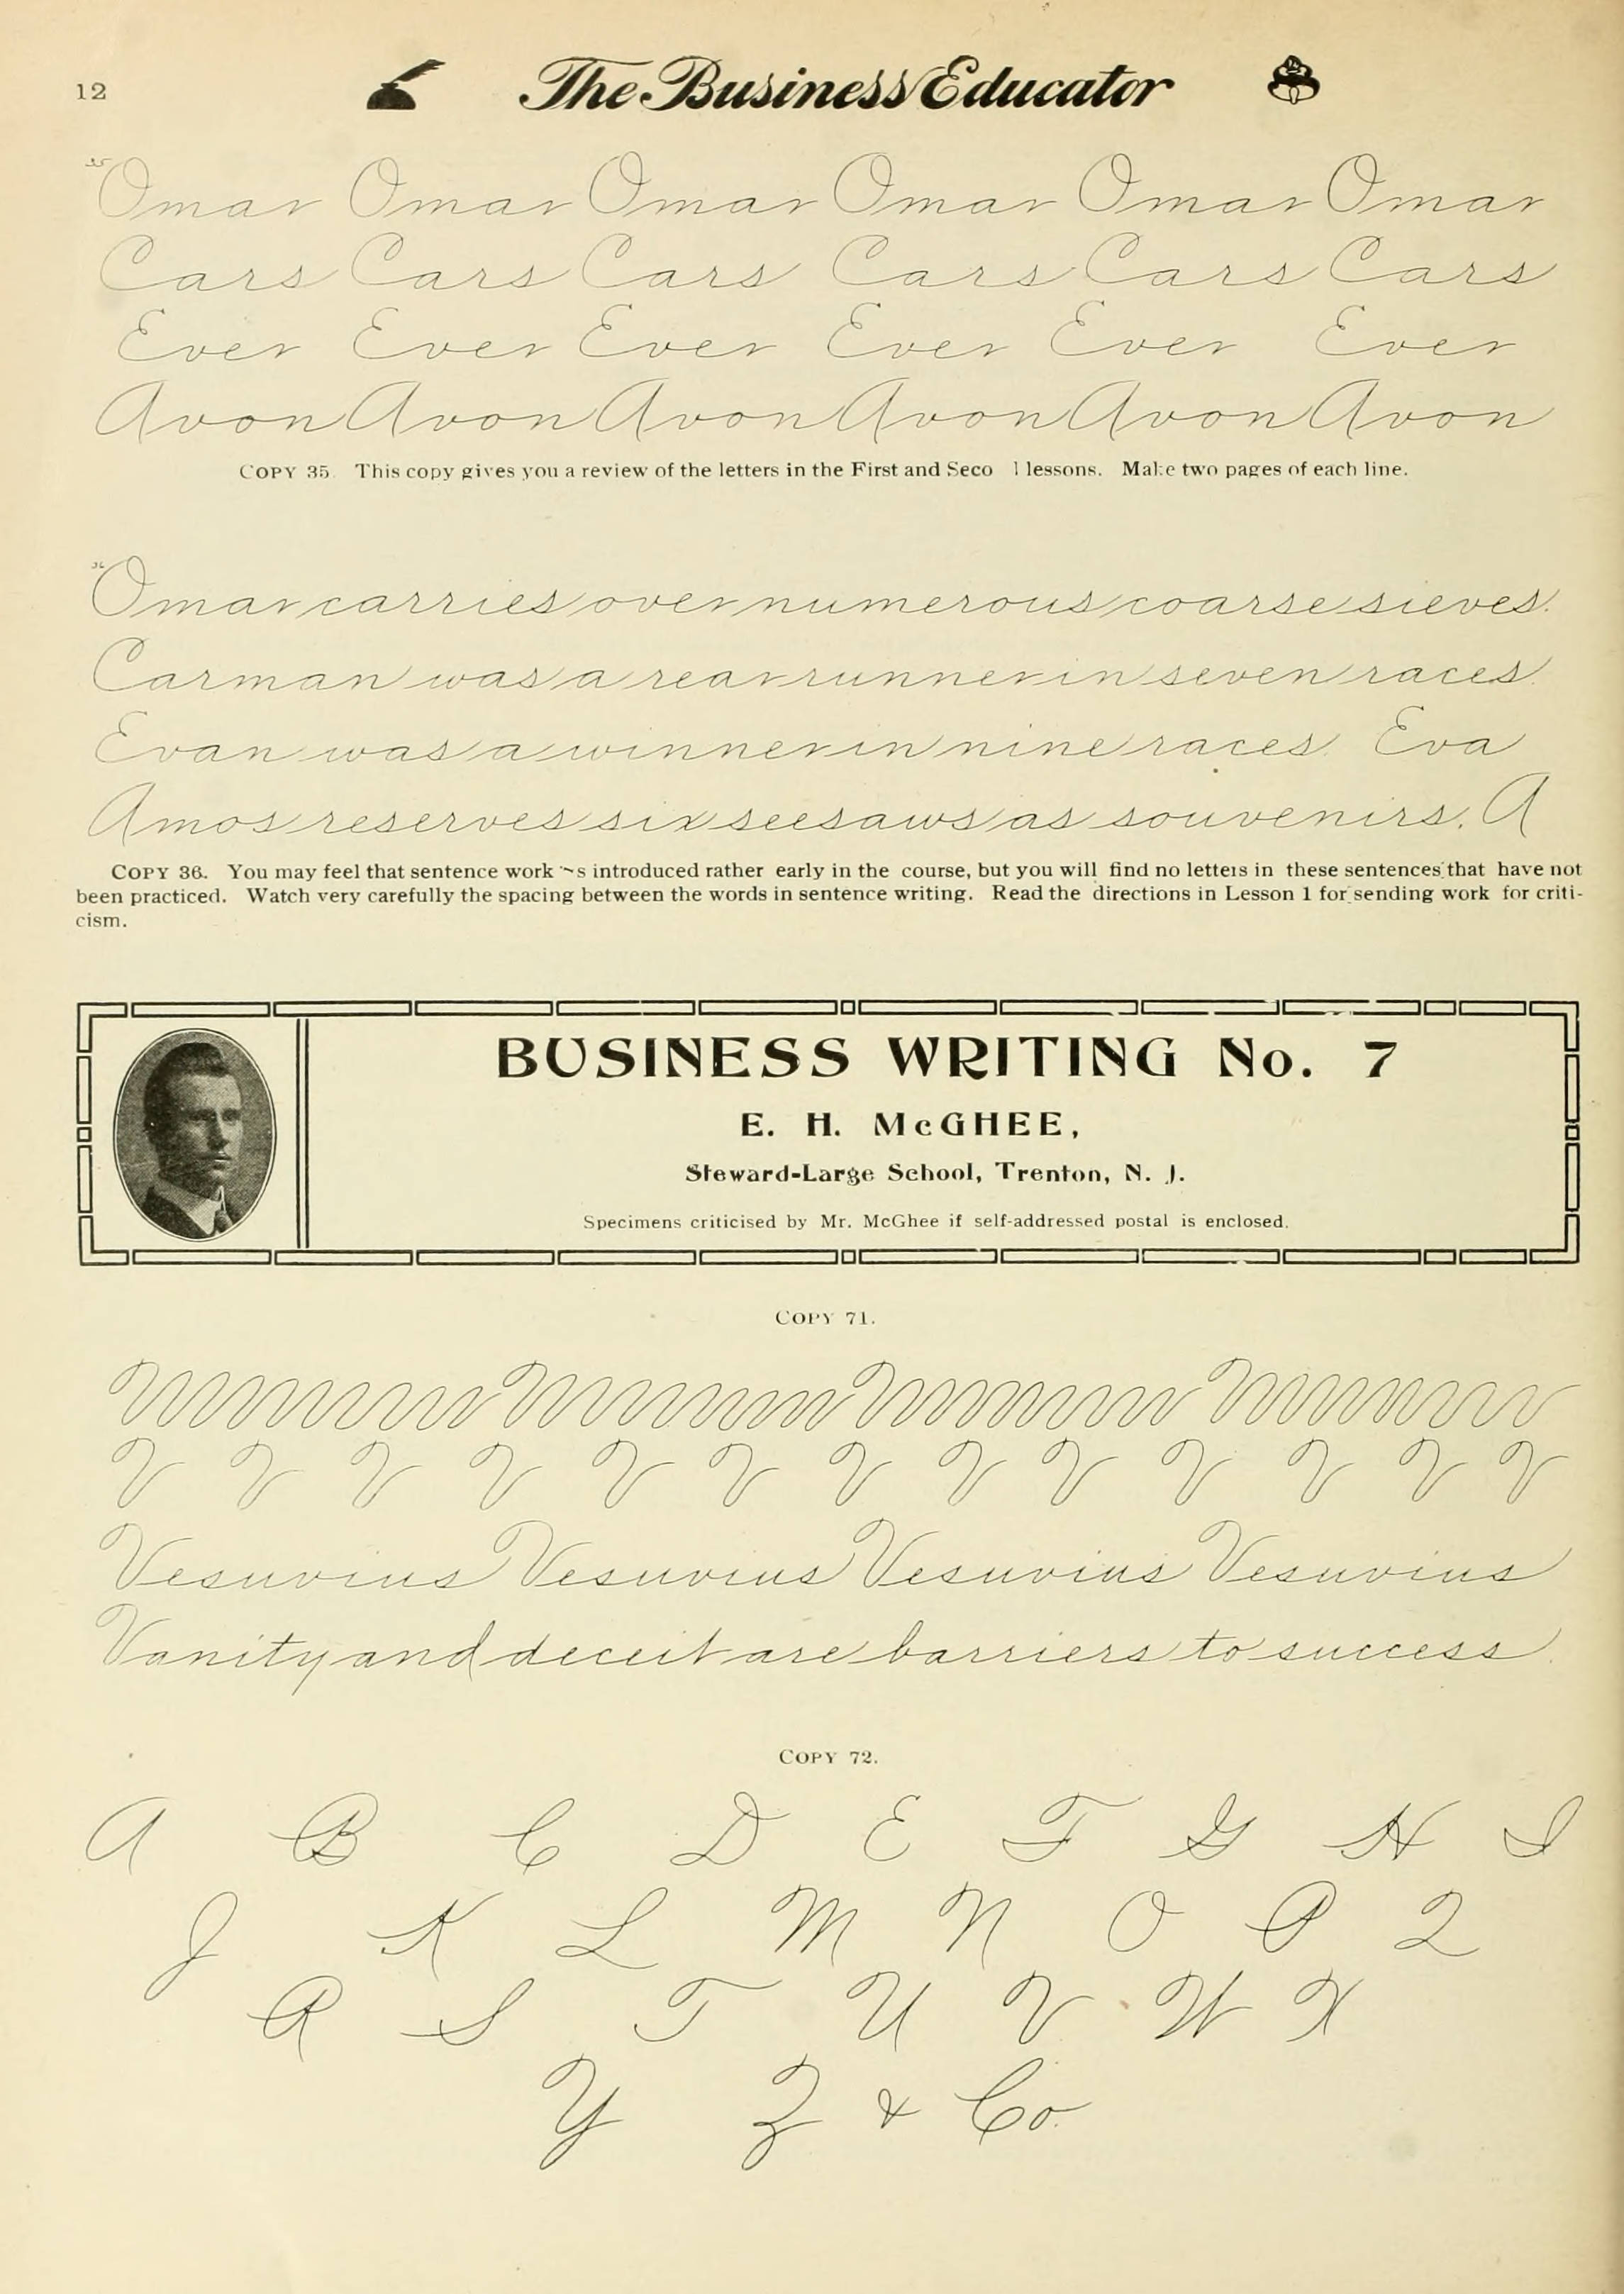 12
The Business Educator
35
Omar Omar Omar Omar Omar Omar
Cars Cars Cars Cars Cars Cars
Ever Ever Ever Ever Ever Ever
Avon Avon Avon Avon Avon Avon
COPY 35. This copy gives you a review of the letters in the First and Seco l lessons. Make two pages of each line.
36
Omar carries over numerous coarse sieves.
Carman was a rear runner in seven races.
Evan was a winner in nine races. Eva
Amos reserves six seesaws as souvenirs. A
COPY 36. You may feel that sentence work s introduced rather early in the course, but you will find no letters in these sentences that have not
been practiced. Watch very carefully the spacing between the words in sentence writing. Read the directions in Lesson 1 for sending work for criti-
cism.
BUSINESS WRITING No. 7
E. H. McGHEE,
Steward-Large School, Trenton, N. J.
Specimens criticised by Mr. McGhee if self-addressed postal is enclosed.
COPY 71.
V V V V V V V V V V V V V
Vesuvius Vesuvius Vesuvius Vesuvius
Vanity and deceit are barriers to success.
COPY 72.
A B C D E F G H I
J K L M N O P Q
R S T U V W X
Y Z & Co.